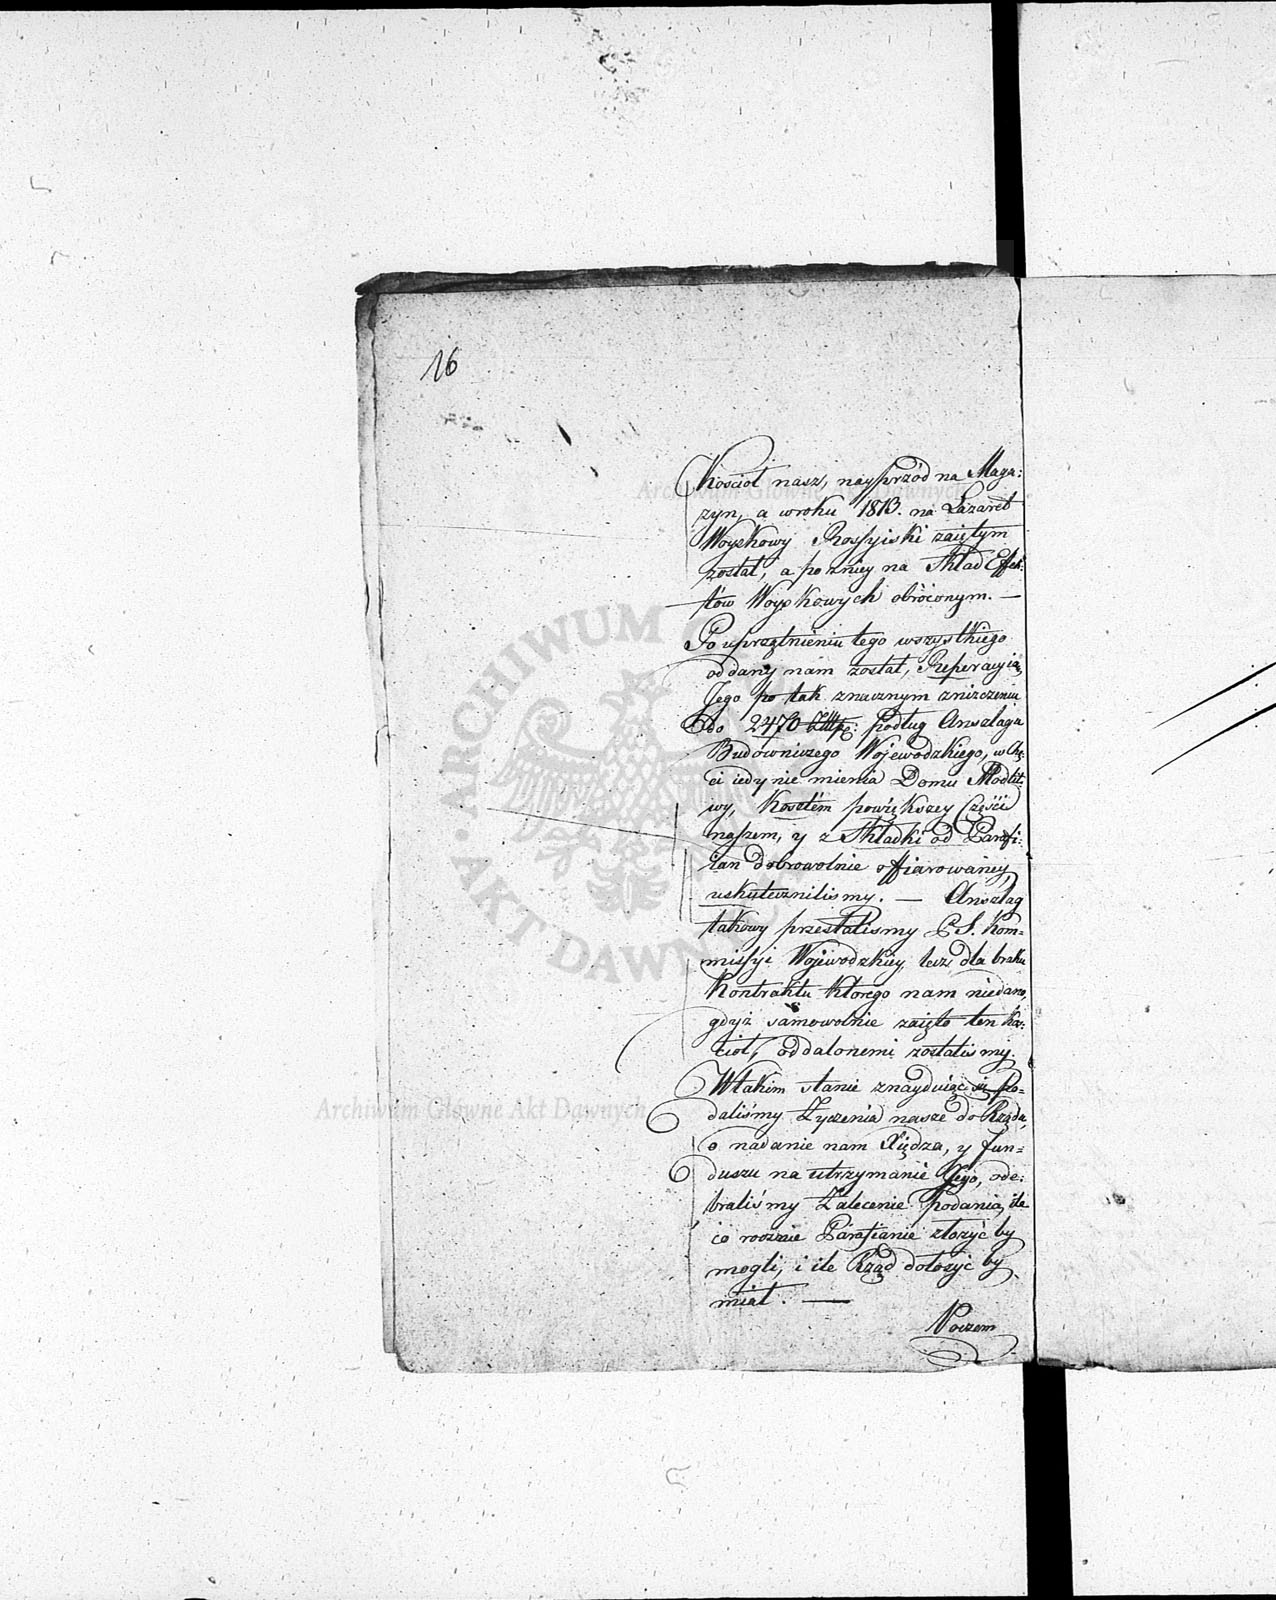 16
Kościoł nasz, nayprzód na Maga:
zyn, a w roku 1813. na Lazaret
Woyskowy Rossyiski zaiętym
został, a pozniey na Skład Effek:
tów Woyskowych obróconym. —
Po uprzątnieniu tego wszystkiego
oddany nam został, Reperacyią
Jego po tak znacznym zniszczeniu
do 2470 Złltp: podług Anszlagu
Budowniczego Wojewodzkiego, w Chę:
ci iedynie mienia Domu Modlit:
wy, Kosztem powiększey Części
naszem, y z Składki od Parafi:
ian dobrowolnie offiarowaney,
uskutecznilismy. — Anszlag
takowy przesłalismy P. S. Kom=
missyi Wojewodzkiey, lecz dla braku
Kontraktu ktorego nam niedano,
gdyż samowolnie zaięto ten Koś:
cioł, oddalonemi zostalismy.
W takim stanie znayduiąc się po=
daliśmy Życzenia nasze do Rządu,
o nadanie nam Xiędza, y fun=
duszu na utrzymanie Jego, ode:
braliśmy Zalecenie Podania, ile
co rocznie Parafianie złożyć by
mogli, i ile Rząd dołożyć by
miał. —
Poczem
ARCHIWUM GŁÓWNE AKT DAWNYCH
Archiwum Główne Akt Dawnych
Archiwum Główne Akt Dawnych